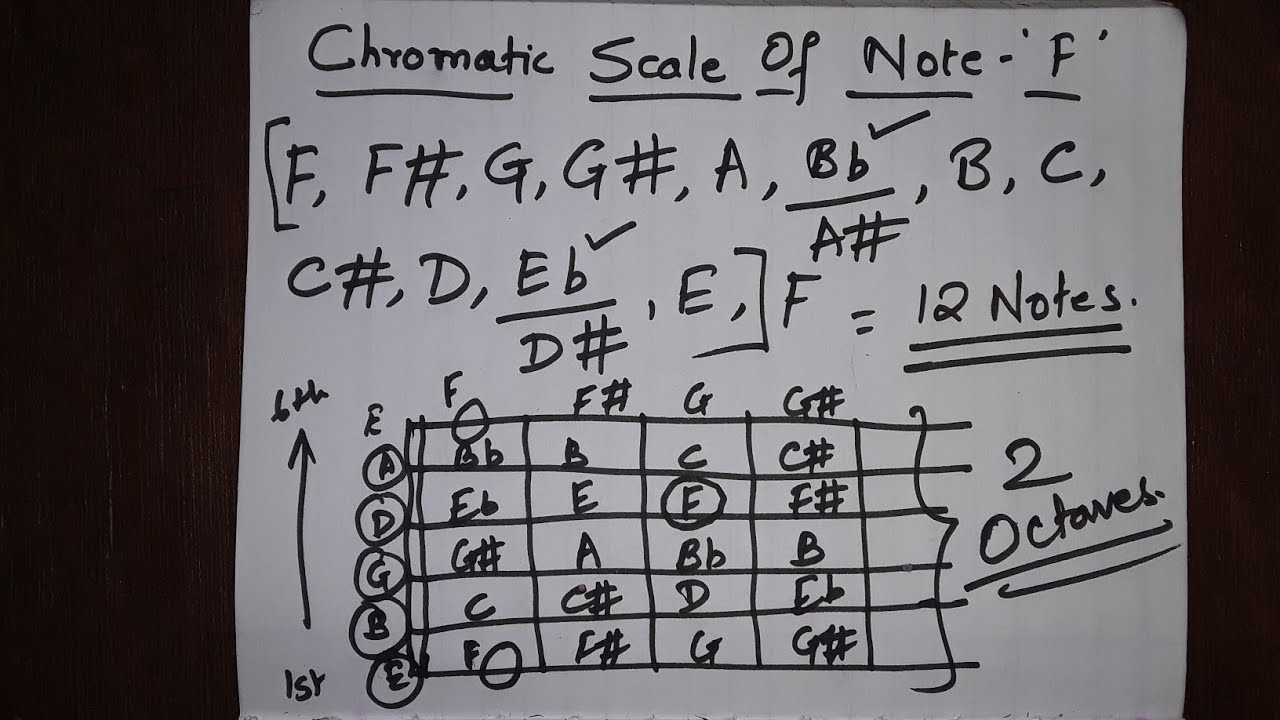 Chromatic Scale Of Note - 'F'
[F, F#, G, G#, A, Bb/A#, B, C,
C#, D, Eb/D#, E,] F = 12 Notes.
6th E F F# G G#
A Bb B C C#
D Eb E F F#
G G# A Bb B
B C C# D Eb
1st E F F# G G#
2
Octaves.